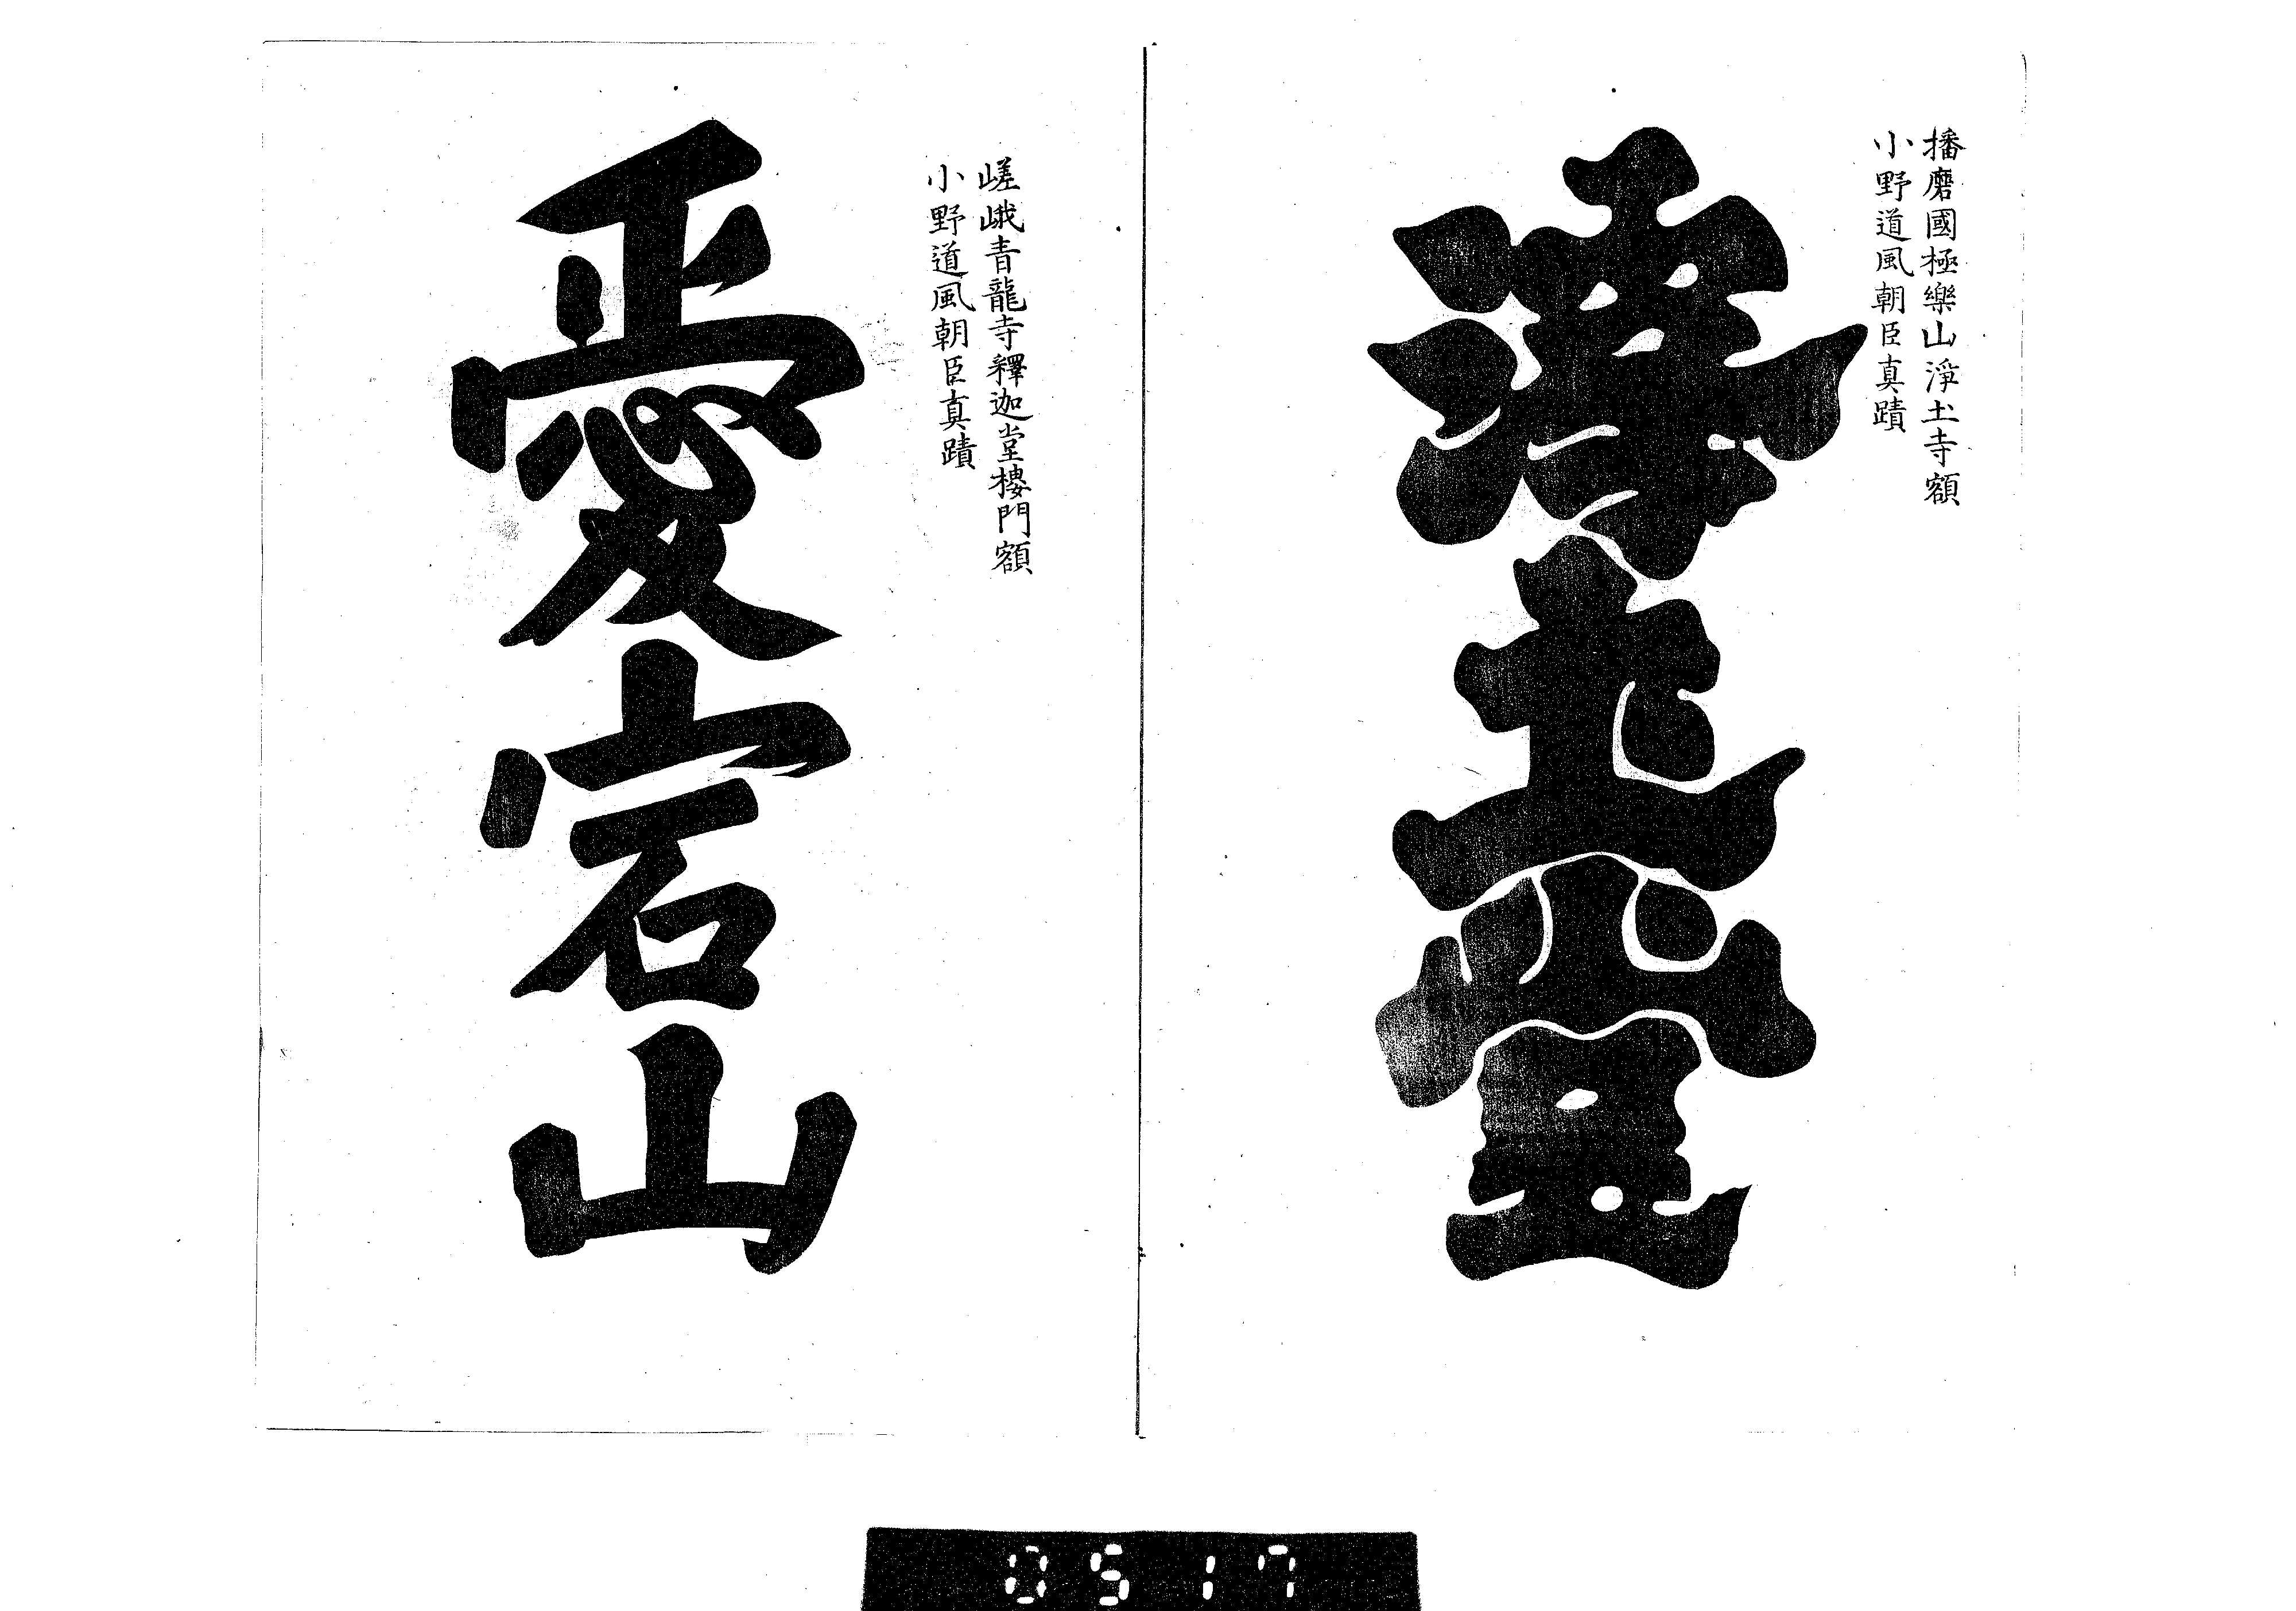 播磨國極樂山淨土寺額
小野道風朝臣真蹟
淨土堂
嵯峨青龍寺釋迦堂樓門額
小野道風朝臣真蹟
愛宕山
0517